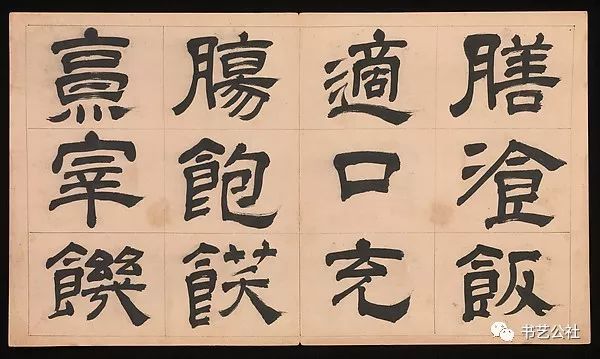 膳湌飯
適口充
腸飽飫
烹宰饑
书艺公社